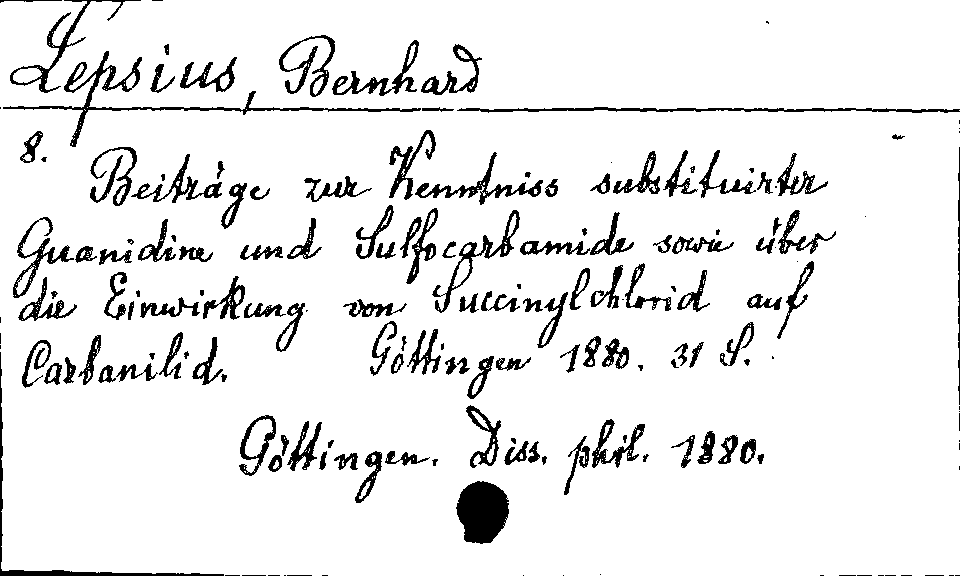 Lepsius, Bernhard
8.
Beiträge zur Kenntniss substituirter
Guanidine und Sulfocarbamide sowie über
die Einwirkung von Succinylchlorid auf
Carbanilid. Göttingen 1880. 31 S.
Göttingen. Diss. phil. 1880.